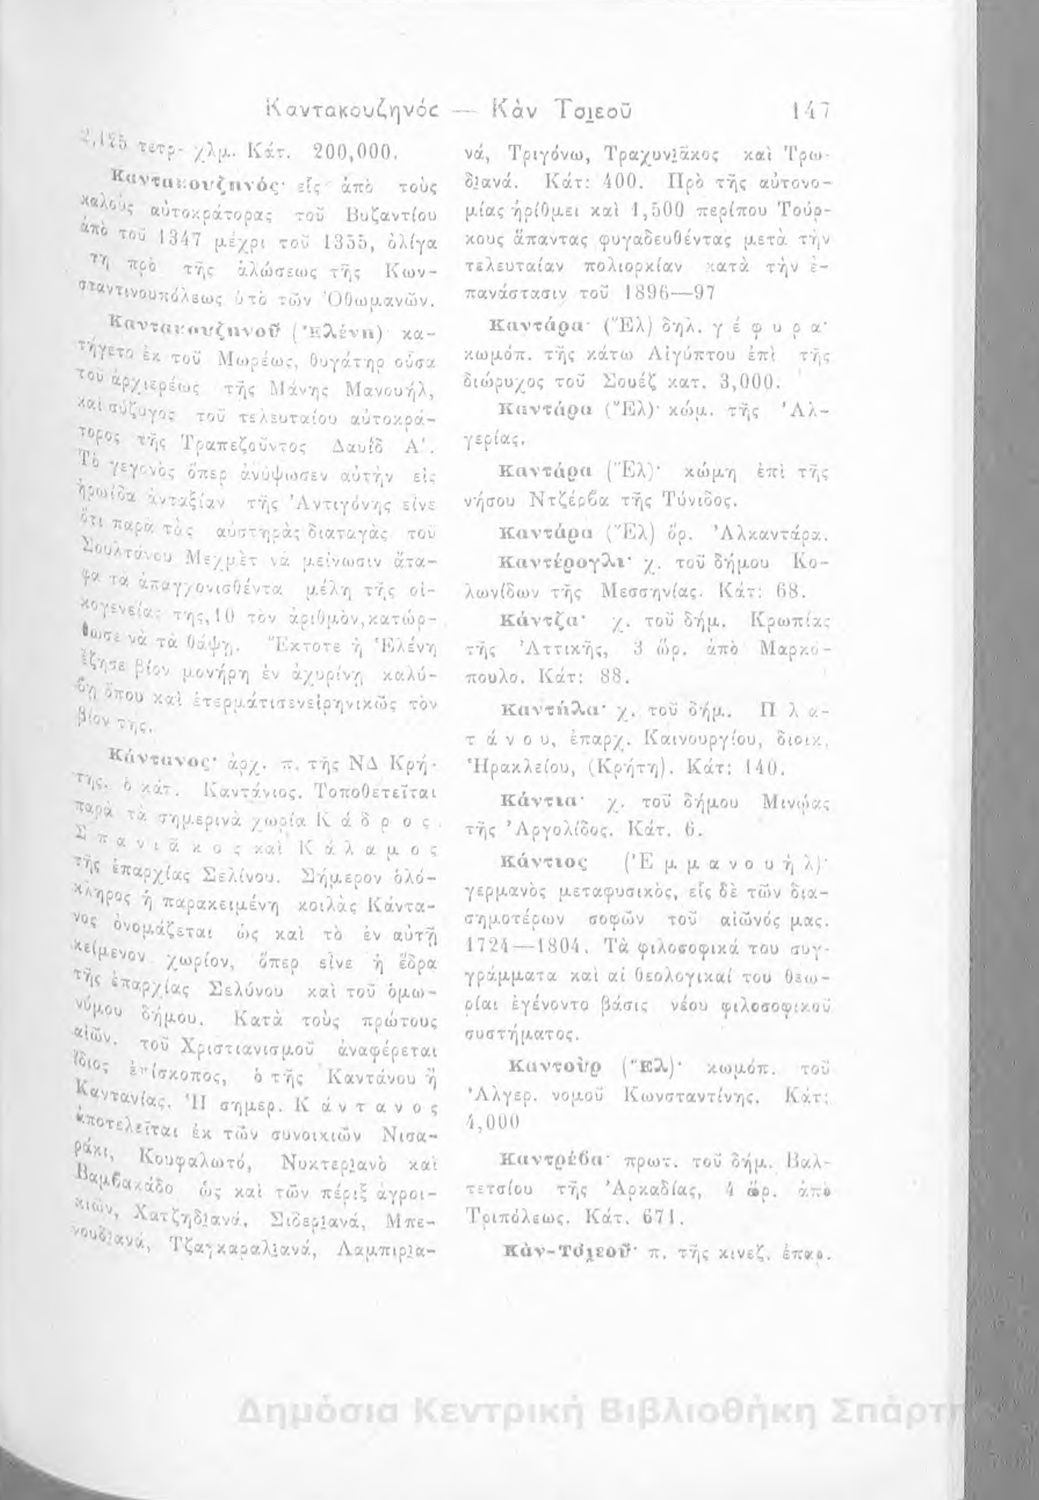 Καντακουζηνός — Κὰν Τσιεοῦ 147
2,125 τετρ. χλμ. Κάτ. 200,000.
Καντακουζηνός· εἷς ἀπὸ τοὺς
καλοὺς αὐτοκράτορας τοῦ Βυζαντίου
ἀπὸ τοῦ 1347 μέχρι τοῦ 1355, ὀλίγα
τη πρὸ τῆς ἁλώσεως τῆς Κων-
σταντινουπόλεως ὑπὸ τῶν Ὀθωμανῶν.
Καντακουζηνοῦ (Ἑλένη) κα-
τήγετο ἐκ τοῦ Μωρέως, θυγάτηρ οὖσα
τοῦ ἀρχιερέως τῆς Μάνης Μανουήλ,
καὶ σύζυγος τοῦ τελευταίου αὐτοκρά-
τορος τῆς Τραπεζοῦντος Δαυΐδ Α΄.
Τὸ γεγονὸς ὅπερ ἀνύψωσεν αὐτὴν εἰς
ἡρωΐδα ἀνταξίαν τῆς Ἀντιγόνης εἶνε
ὅτι παρὰ τὰς αὐστηρὰς διαταγὰς τοῦ
Σουλτάνου Μεχμὲτ νὰ μείνωσιν ἄτα-
φα τὰ ἀπαγχονισθέντα μέλη τῆς οἰ-
κογενείας της, 10 τὸν ἀριθμὸν, κατώρ-
θωσε νὰ τὰ θάψῃ. Ἔκτοτε ἡ Ἑλένη
ἔζησε βίον μονήρη ἐν ἀχυρίνῃ καλύ-
βῃ ὅπου καὶ ἐτερμάτισεν εἰρηνικῶς τὸν
βίον της.
Κάντανος· ἀρχ. π. τῆς ΝΔ Κρή-
της. ὁ κάτ. Καντάνιος. Τοποθετεῖται
παρὰ τὰ σημερινὰ χωρία Κάδρος.
Σπανιᾶκος καὶ Κάλαμος
τῆς ἐπαρχίας Σελίνου. Σήμερον ὁλό-
κληρος ἡ παρακειμένη κοιλὰς Κάντα-
νος ὀνομάζεται ὡς καὶ τὸ ἐν αὐτῇ
κείμενον χωρίον, ὅπερ εἶνε ἡ ἕδρα
τῆς ἐπαρχίας Σελύνου καὶ τοῦ ὁμω-
νύμου δήμου. Κατὰ τοὺς πρώτους
αἰῶν. τοῦ Χριστιανισμοῦ ἀναφέρεται
ἴδιος ἐπίσκοπος, ὁ τῆς Καντάνου ἢ
Καντανίας. Ἡ σημερ. Κάντανος
ἀποτελεῖται ἐκ τῶν συνοικιῶν Νισα-
ράκι, Κουφαλωτό, Νυκτεριανὸ καὶ
Βαμβακάδο ὡς καὶ τῶν πέριξ ἀγροι-
κιῶν, Χατζηδιανά, Σιδεριανά, Μπε-
νουδιανά, Τζαγκαραλιανά, Λαμπιρια-
νά, Τριγόνω, Τραχυνιᾶκος καὶ Τρω-
διανά. Κάτ: 400. Πρὸ τῆς αὐτονο-
μίας ἠρίθμει καὶ 1,500 περίπου Τούρ-
κους ἅπαντας φυγαδευθέντας μετὰ τὴν
τελευταίαν πολιορκίαν κατὰ τὴν ἐ-
πανάστασιν τοῦ 1896—97
Καντάρα· (Ἐλ) δηλ. γέφυρα·
κωμόπ. τῆς κάτω Αἰγύπτου ἐπὶ τῆς
διώρυχος τοῦ Σουέζ κατ. 3,000.
Καντάρα (Ἐλ)· κώμ. τῆς Ἀλ-
γερίας.
Καντάρα (Ἐλ)· κώμη ἐπὶ τῆς
νήσου Ντζέρβα τῆς Τύνιδος.
Καντάρα (Ἐλ) ὅρ. Ἀλκαντάρα.
Καντέρογλι· χ. τοῦ δήμου Κο-
λωνίδων τῆς Μεσσηνίας. Κάτ: 68.
Κάντζα· χ. τοῦ δήμ. Κρωπίας
τῆς Ἀττικῆς, 3 ὡρ. ἀπὸ Μαρκό-
πουλο. Κάτ: 88.
Καντήλα· χ. τοῦ δήμ. Πλα-
τάνου, ἐπαρχ. Καινουργίου, διοικ.
Ἡρακλείου, (Κρήτη). Κάτ: 140.
Κάντια· χ. τοῦ δήμου Μινῴας
τῆς Ἀργολίδος. Κάτ. 6.
Κάντιος (Ἐμμανουήλ)·
γερμανὸς μεταφυσικὸς, εἷς δὲ τῶν δια-
σημοτέρων σοφῶν τοῦ αἰῶνός μας.
1724—1804. Τὰ φιλοσοφικά του συγ-
γράμματα καὶ αἱ θεολογικαί του θεω-
ρίαι ἐγένοντο βάσις νέου φιλοσοφικοῦ
συστήματος.
Καντοὺρ (Ἐλ)· κωμόπ. τοῦ
Ἀλγερ. νομοῦ Κωνσταντίνης. Κάτ:
4,000
Καντρέβα· πρωτ. τοῦ δήμ. Βαλ-
τετσίου τῆς Ἀρκαδίας, 4 ὡρ. ἀπὸ
Τριπόλεως. Κάτ. 671.
Κὰν-Τσιεοῦ· π. τῆς κινεζ. ἐπαρ.
Δημόσια Κεντρική Βιβλιοθήκη Σπάρτη